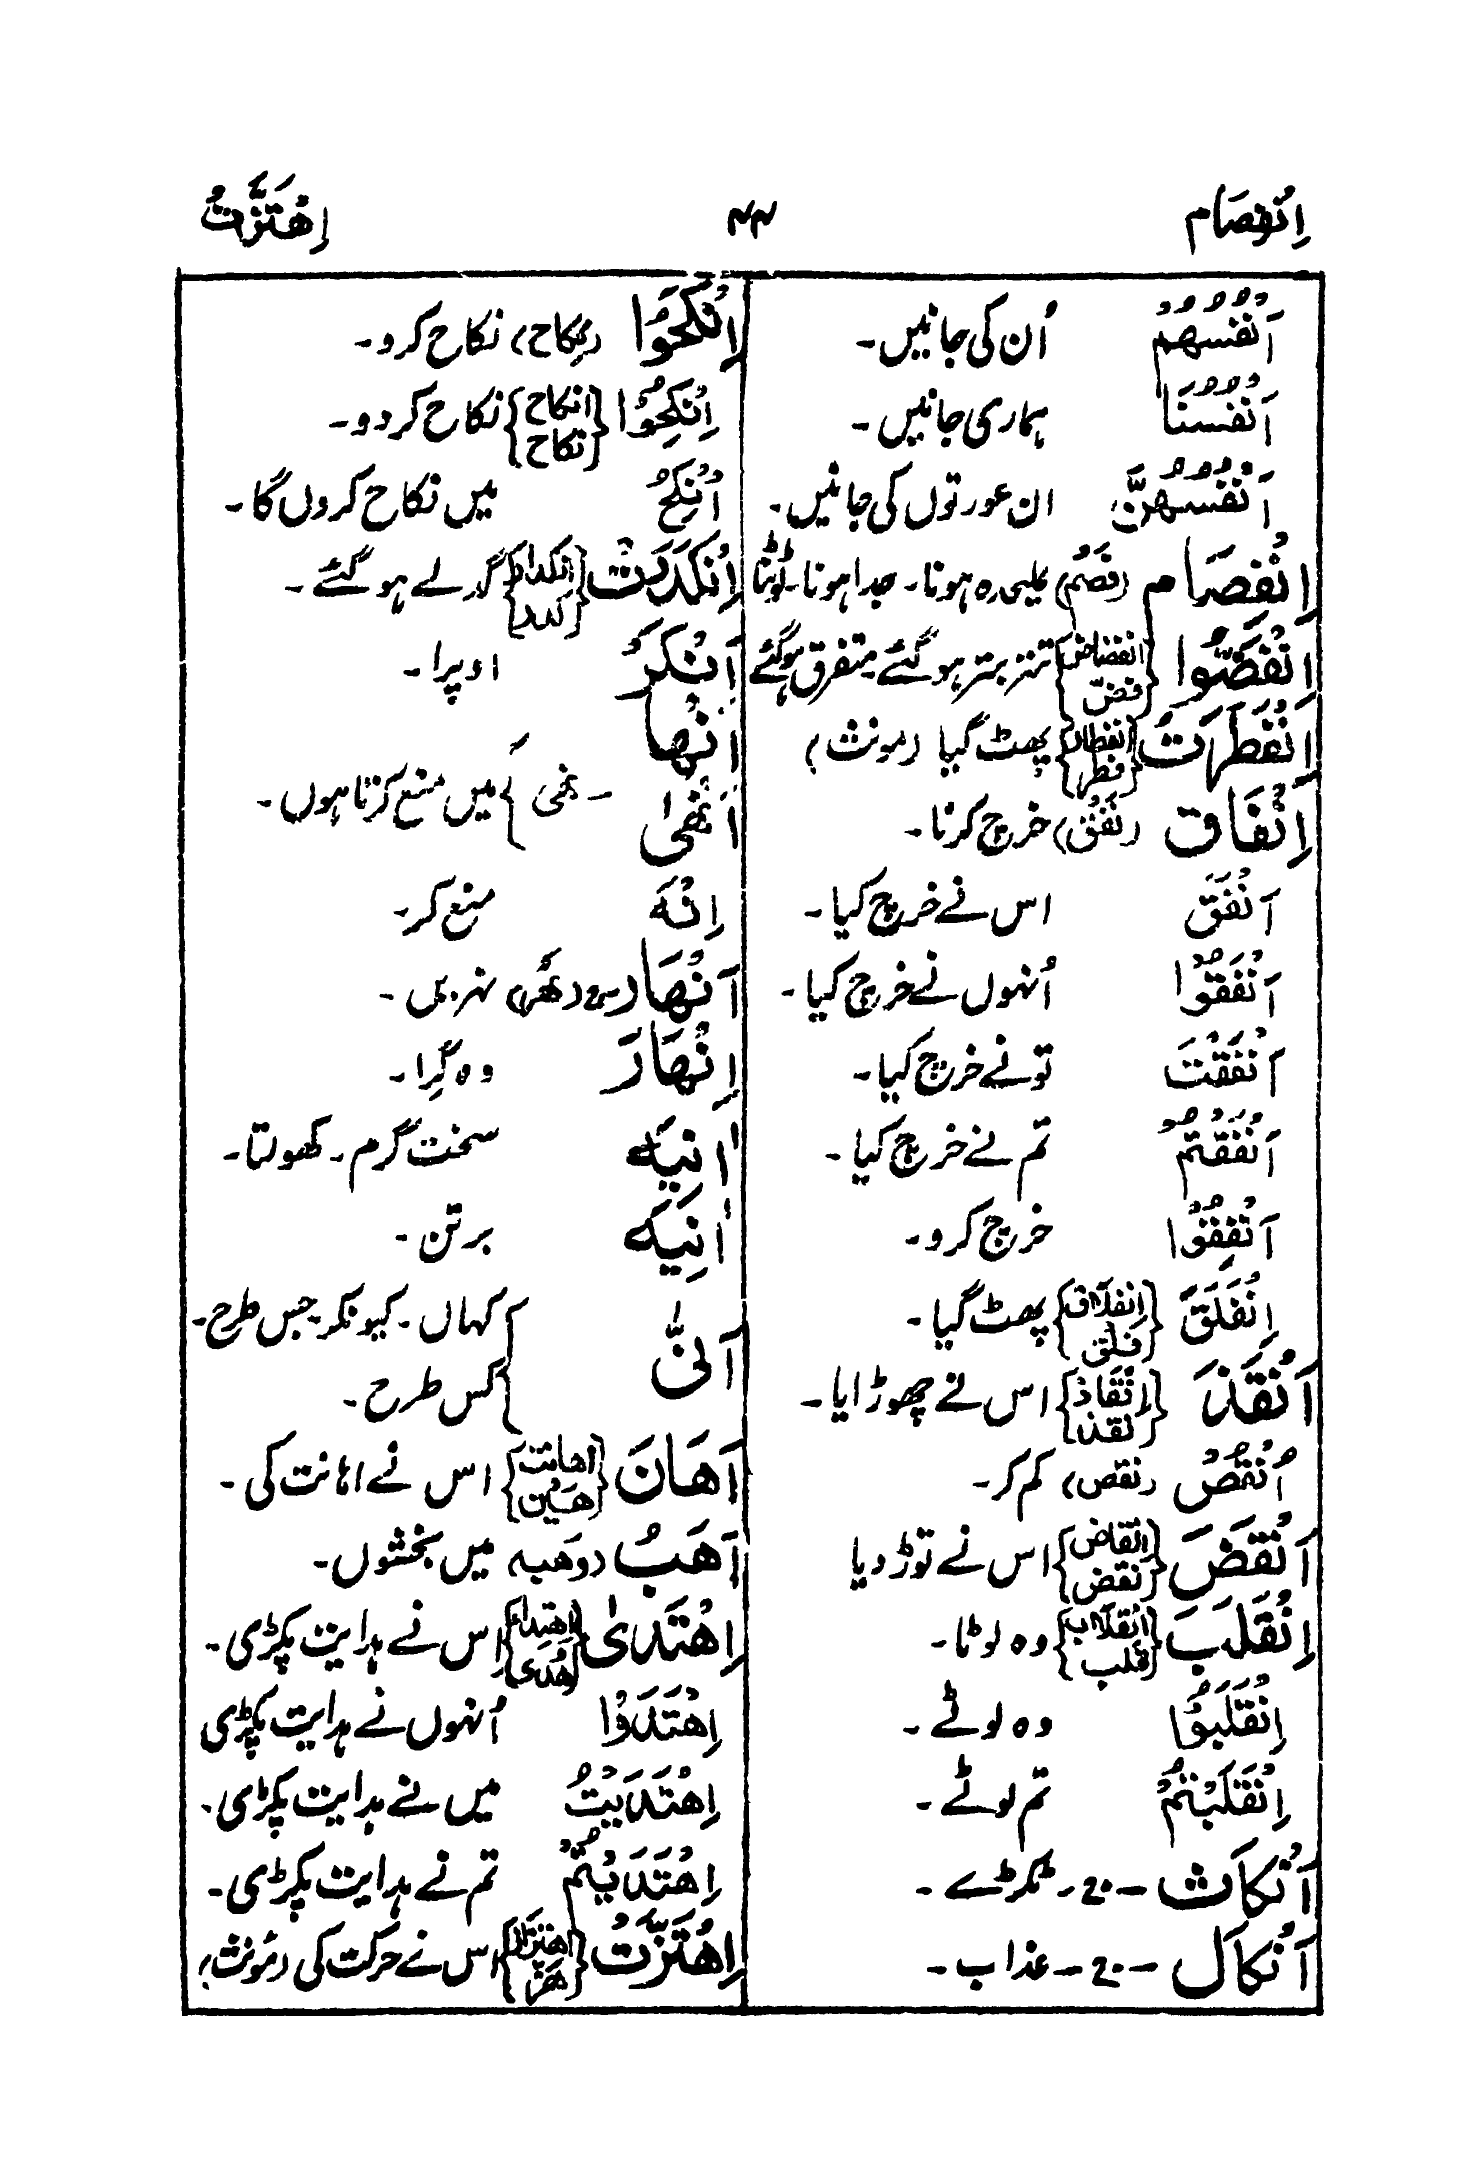 اِنْفِصَام ۴۴ اِهْتَزَّتْ
اَنْفُسُهُمْ اُن کی جانیں۔
اَنْفُسُنَا ہماری جانیں۔
اَنْفُسُهُنَّ ان عورتوں کی جانیں۔
اِنْفِصَام (فَصْم) علیحدہ ہونا۔ جدا ہونا۔ ٹوٹنا
اِنْفَضُّوا {انفضاض فضّ} تتر بتر ہو گئے متفرق ہو گئے
اِنْفَطَرَتْ {انفطار فطر} پھٹ گیا (مونث)
اِنْفَاق (نَفَق) خرچ کرنا۔
اَنْفَقَ اس نے خرچ کیا۔
اَنْفَقُوْا اُنہوں نے خرچ کیا۔
اَنْفَقْتَ تو نے خرچ کیا۔
اَنْفَقْتُمْ تم نے خرچ کیا۔
اَنْفِقُوْا خرچ کرو۔
اِنْفَلَقَ {اِنفلاق فلق} پھٹ گیا۔
اَنْقَذَ {اِنْقَاذ نقذ} اس نے چھوڑایا۔
اُنْقُصْ (نقص) کم کر۔
اَنْقَضَ {انقاض نقض} اس نے توڑ دیا
اِنْقَلَبَ {انقلاب قلب} وہ لوٹا۔
اِنْقَلَبُوْا وہ لوٹے۔
اِنْقَلَبْتُمْ تم لوٹے۔
اَنْكَاث ۔ ج۔ ٹکڑے۔
اَنْكَال ۔ ج۔ عذاب۔
اِنْكَحُوْا (نِکاح) نکاح کرو۔
اِنْكِحُوْا {انکاح نکاح} نکاح کر دو۔
اُنْكِحُ میں نکاح کروں گا۔
اِنْكَدَرَتْ {انکدار کدر} گدلے ہو گئے۔
اَنْكَرُ اوپرا۔
اَنْهَا
اَنْهٰى ۔ نہی } میں منع کرتا ہوں۔
اِنْهَ منع کر۔
اَنْهَار ج (نَهْر) نہریں۔
اِنْهَارَ وہ گِرا۔
اٰنِيَه سخت گرم۔ کھولتا۔
اٰنِيَه برتن۔
اَنّٰى { کہاں۔ کیونکر۔ جس طرح۔
کس طرح۔
اَهَانَ {اهانت هَيْن} اس نے اہانت کی۔
اَهَبُ (وَهبه میں بخشوں۔
اِهْتَدٰى {اهتداء هُدى} اس نے ہدایت پکڑی۔
اِهْتَدَوْا اُنہوں نے ہدایت پکڑی
اِهْتَدَيْتُ میں نے ہدایت پکڑی۔
اِهْتَدَيْتُمْ تم نے ہدایت پکڑی۔
اِهْتَزَّتْ {اهتزاز هَزّ} اس نے حرکت کی (مُونث)